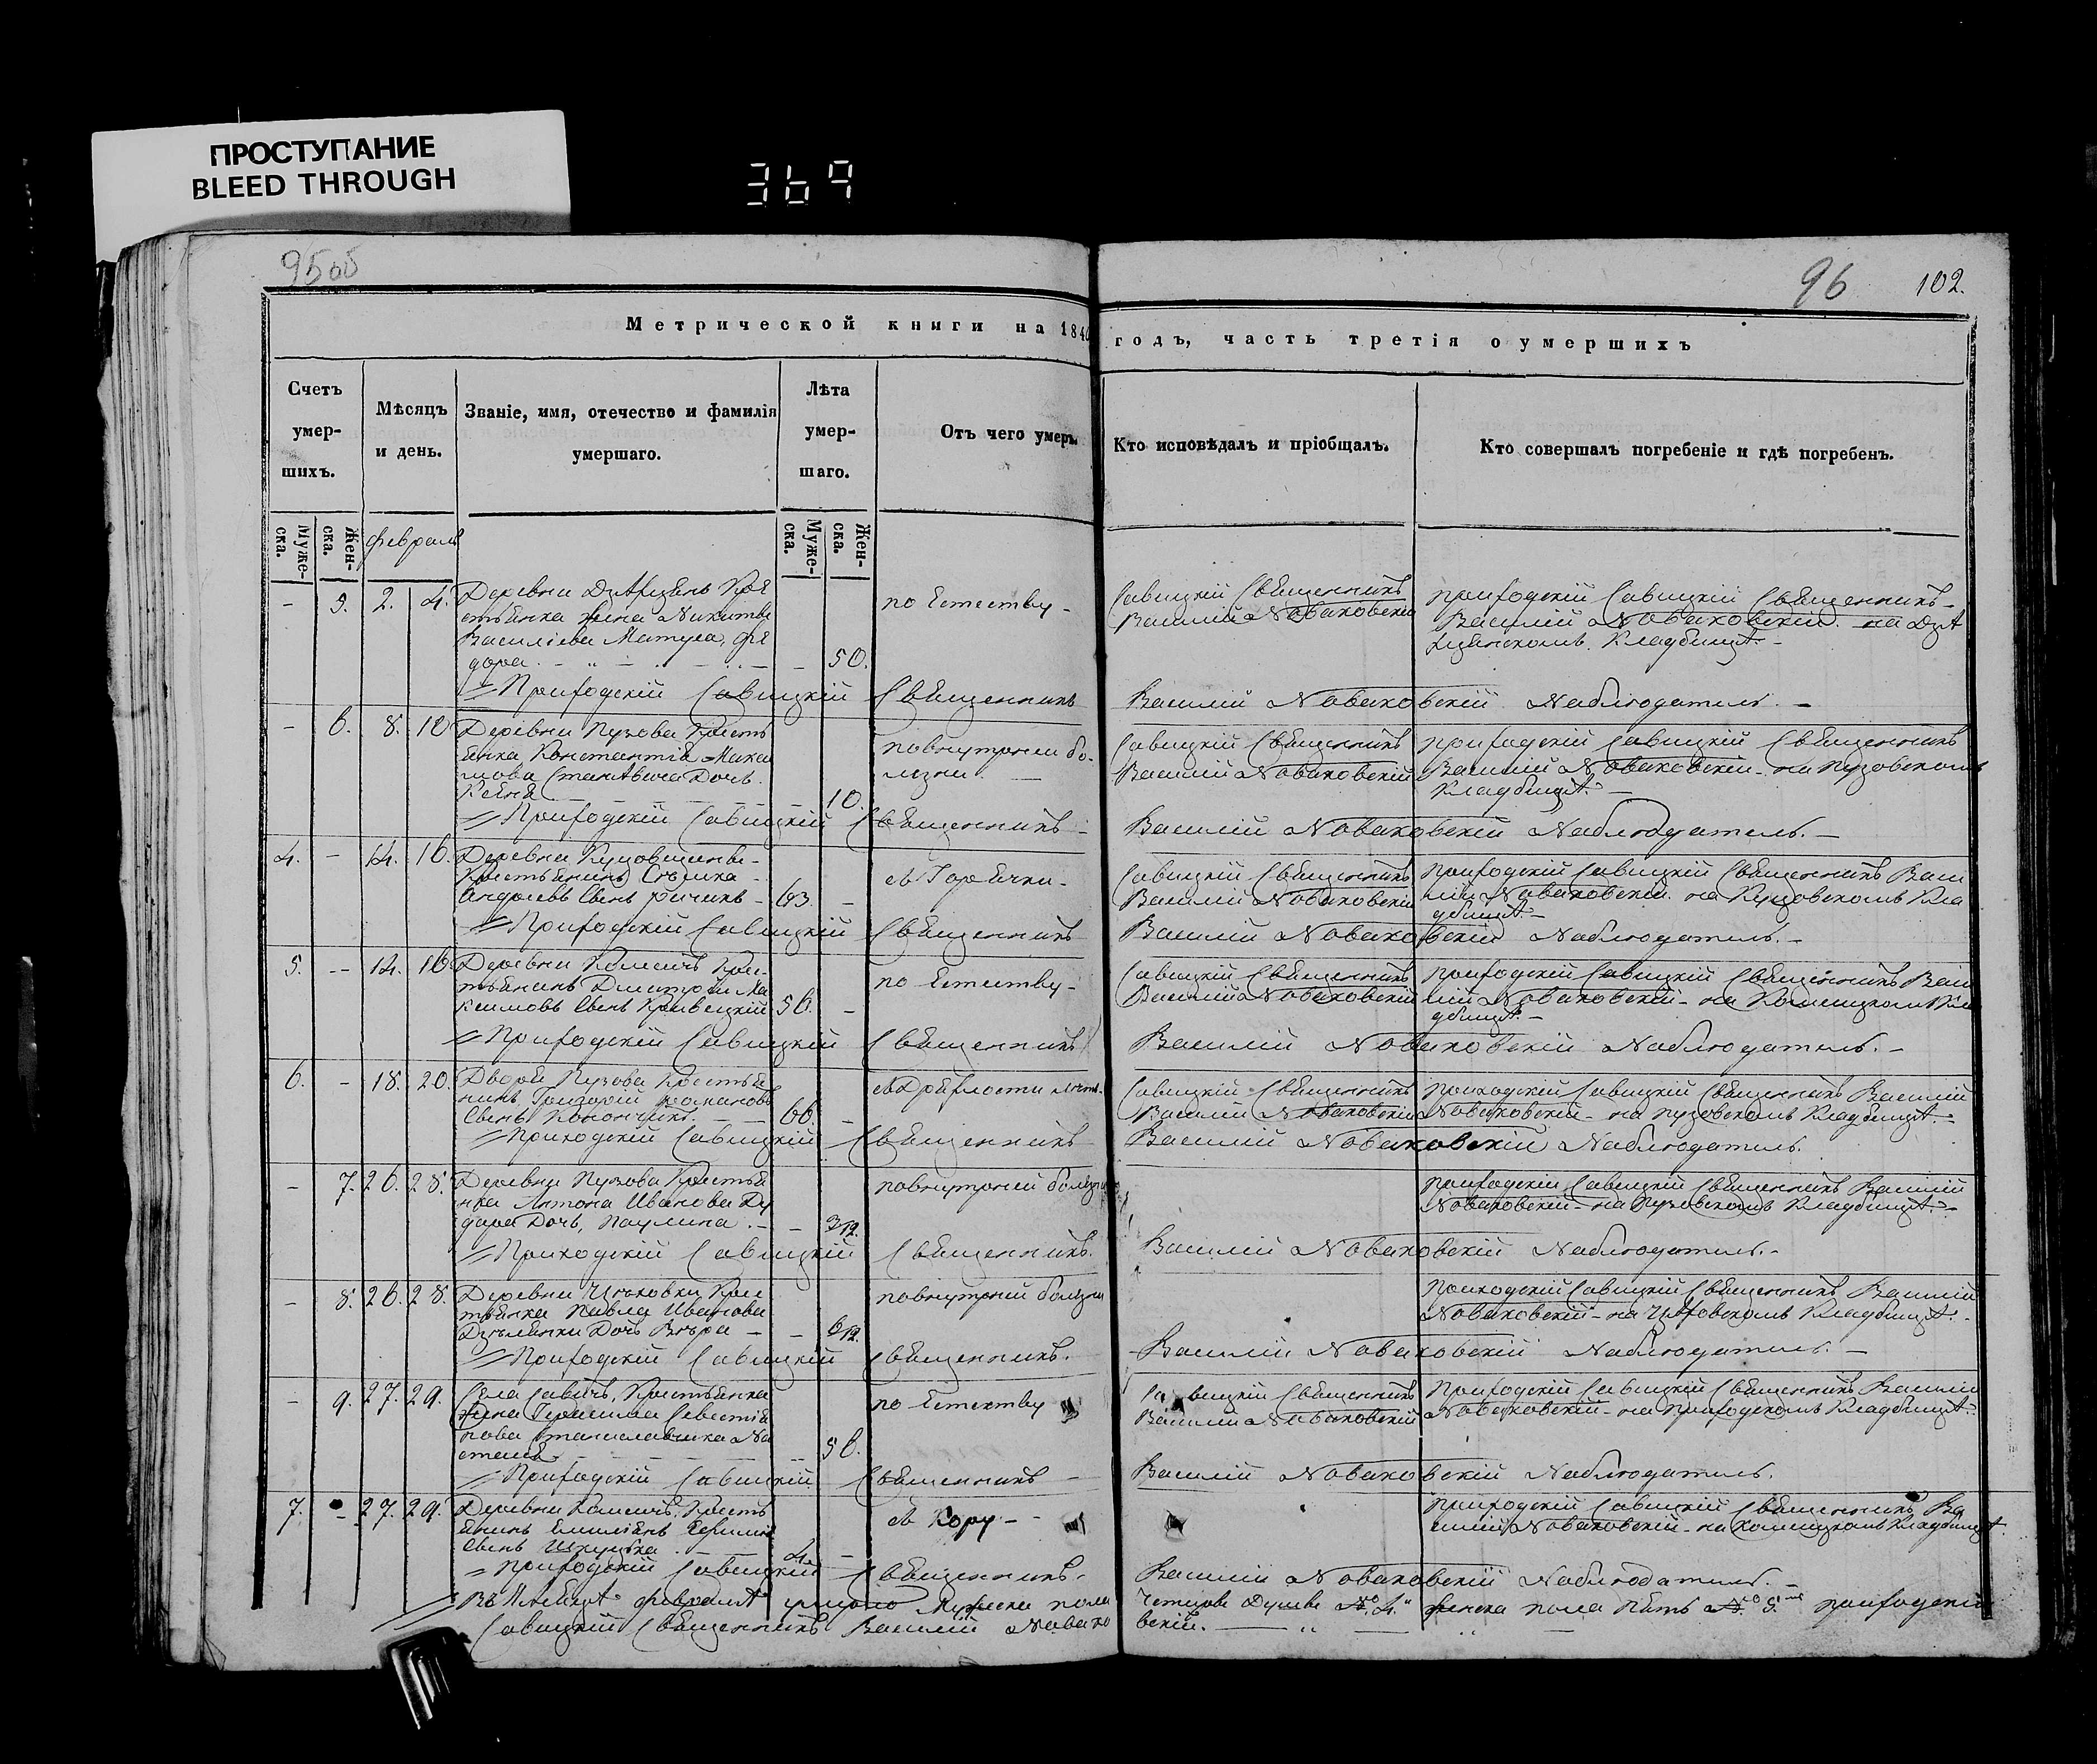 ПРОСТУПАНИЕ
BLEED THROUGH
369
95 об
96 102.
Метрической книги на 1840 годъ, часть третія о умершихъ
Счетъ умер-шихъ.
Мѣсяцъ и день.
Званіе, имя, отечество и фамилія умершаго.
Лѣта умер-шаго.
Отъ чего умеръ.
Кто исповѣдалъ и пріобщалъ.
Кто совершалъ погребеніе и гдѣ погребенъ.
Муже-ска.
Жен-ска.
Февраль
Муже-ска.
Жен-ска.
– 5. 2. 4. Деревни Крѣ
стьянка жена Никиты
Василіева Матуса, Фѣ
дора. – 50.
по Естеству –
Савицкій Священникъ
Василій Новаковскій
приходскій Савицкій Священникъ –
Василій Новаковскій на
Кладбищѣ. –
Приходскій Савицкій Священникъ Василій Новаковскій Наблюдатель. –
– 6. 8. 10. Деревни Пузова Кресть
янка Константія Мака
Дочь
10.
повнутрнни бо-
лезни. –
Савицкій Священникъ
Василій Новаковскій
приходскій Савицкій Священникъ
Василій Новаковскій – на Пузовскомъ
Кладбищѣ. –
Приходскій Савицкій Священникъ – Василій Новаковскій Наблюдатель. –
4. – 14. 16. Деревни
Крестьянинъ
Андреевъ Сынъ – 63. –
Горячки –
Савицкій Священникъ
Василій Новаковскій
приходскій Савицкій Священникъ Васи
лій Новаковскій на Кла
дбищѣ –
Приходскій Савицкій Священникъ Василій Новаковскій Наблюдатель. –
5. – 14. 16. Деревни Крес
тьянинъ Дмитрій Ма
ксимовъ Сынъ Кривецкій 56. –
по Естеству –
Савицкій Священникъ
Василій Новаковскій
приходскій Савицкій Священникъ Васи
лій Новаковскій – на Кла
дбищѣ. –
Приходскій Савицкій Священникъ Василій Новаковскій Наблюдатель. –
6. – 18. 20. Двора Пузова Крестья
нинъ Григорій Романовъ
Сынъ 66. –
Савицкій Священникъ
Василій Новаковскій
Приходскій Савицкій Священникъ Василій
Новаковскій – на пузовскомъ Кладбищѣ. –
Приходскій Савицкій Священникъ Василій Новаковскій Наблюдатель.
– 7. 26. 28. Деревни Пузова Крестья
нка Антона Иванова Ду
дара Дочь, Паулина. – – 3/12.
повнутрней болезни
приходскій Савицкій Священникъ Василій
Новаковскій – на Пузовскомъ Кладбищѣ. –
Приходскій Савицкій Священникъ. Василій Новаковскій Наблюдатель. –
– 8. 26. 28. Деревни Крес
тьянка Павла Иванова
Дочь Вѣра – – 6/12.
повнутрней болезни
Приходскій Савицкій Священникъ Василій
Новаковскій – на Кладбищѣ. –
Приходскій Савицкій Священникъ. Василій Новаковскій Наблюдатель. –
– 9. 27. 29. Села Савичъ, Крестьянка
жена Герасима Севастія
нова На
56.
по Естеству
Савицкій Священникъ
Василій Новаковскій
Приходскій Савицкій Священникъ Василій
Новаковскій – на Приходскомъ Кладбищѣ.
Приходскій Савицкій Священникъ – Василій Новаковскій Наблюдатель.
7. – 27. 29. Деревни Кресть
янинъ
Сынъ 4. –
Кору –
Приходскій Савицкій Священникъ Ва
силій Новаковскій – на Кладбищѣ.
Приходскій Савицкій Священникъ. Василій Новаковскій Наблюдатель. –
Въ Февралѣ умерло Мужеска пола Четыре Души № 4. женска пола Пять № 5. приходскій
Савицкій Священникъ Василій Новаковскій. –